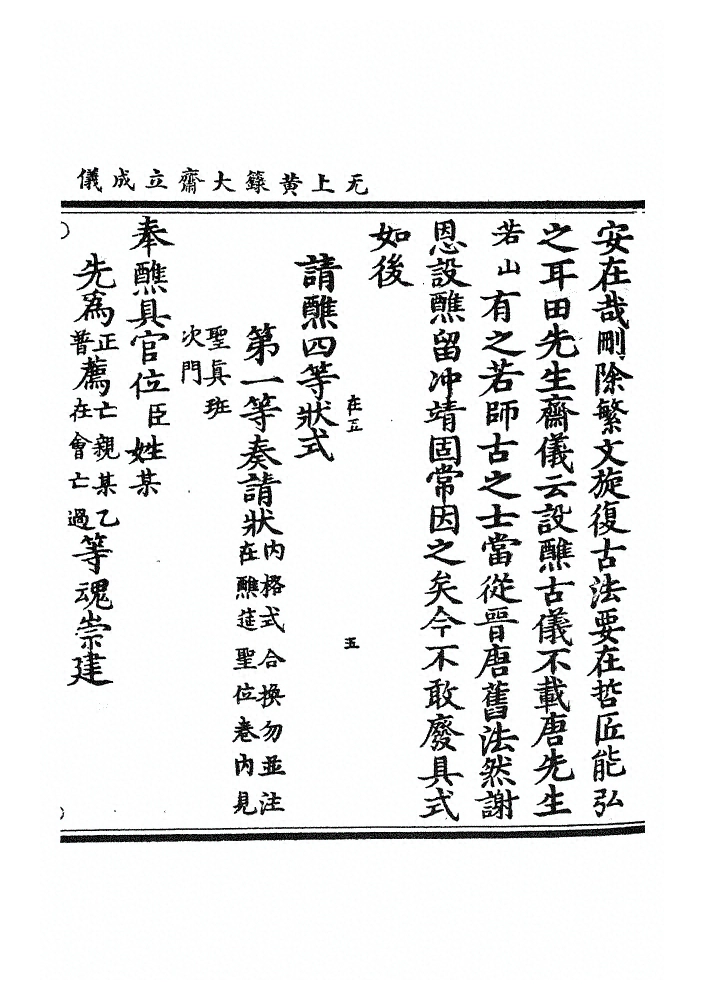 无上黃籙大齋立成儀
安在哉刪除繁文旋復古法要在哲匠能弘
之耳田先生齋儀云設醮古儀不載唐先生
若山有之若師古之士當從晉唐舊法然謝
恩設醮留冲靖固常因之矣今不敢廢具式
如後
在五
五
請醮四等狀式
第一等奏請狀內格式合換勿並注
在醮莚聖位卷內見
聖眞班
次門
奉醮具官位臣姓某
先為正普薦亡親某乙在會亡過等魂崇建